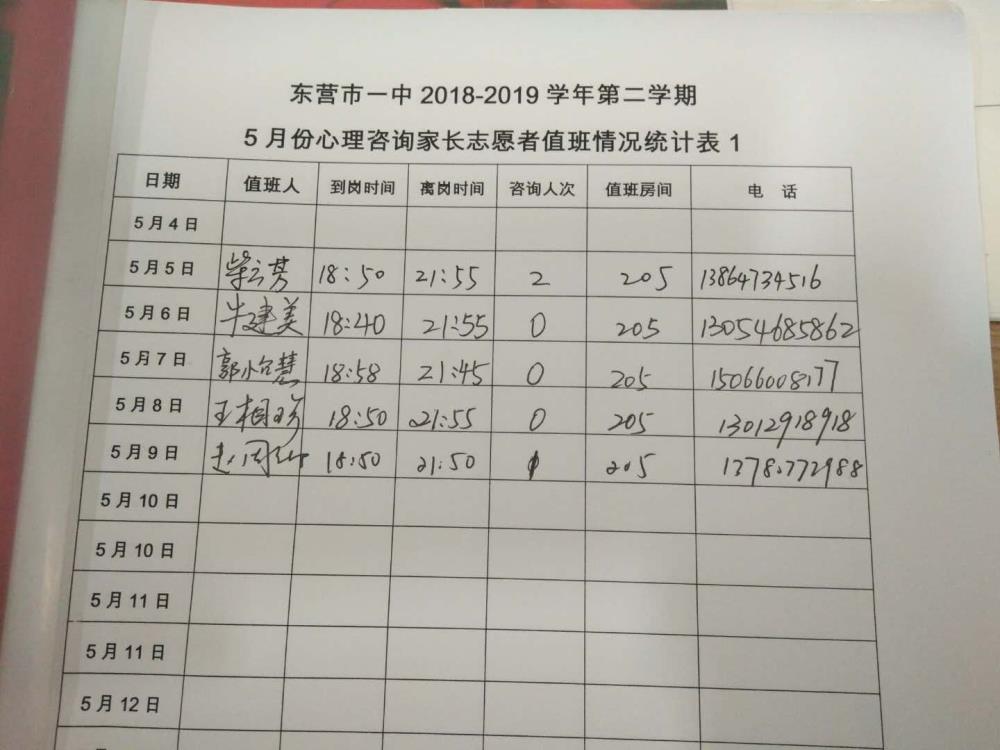 东营市一中 2018-2019 学年第二学期
5 月份心理咨询家长志愿者值班情况统计表 1
日期 值班人 到岗时间 离岗时间 咨询人次 值班房间 电 话
5 月 4 日
5 月 5 日 柴云芬 18:50 21:55 2 205 13864734516
5 月 6 日 牛建美 18:40 21:55 0 205 13054685862
5 月 7 日 18:58 21:45 0 205 15066008177
5 月 8 日 18:50 21:55 0 205 13012918918
5 月 9 日 18:50 21:50 1 205
5 月 10 日
5 月 10 日
5 月 11 日
5 月 11 日
5 月 12 日